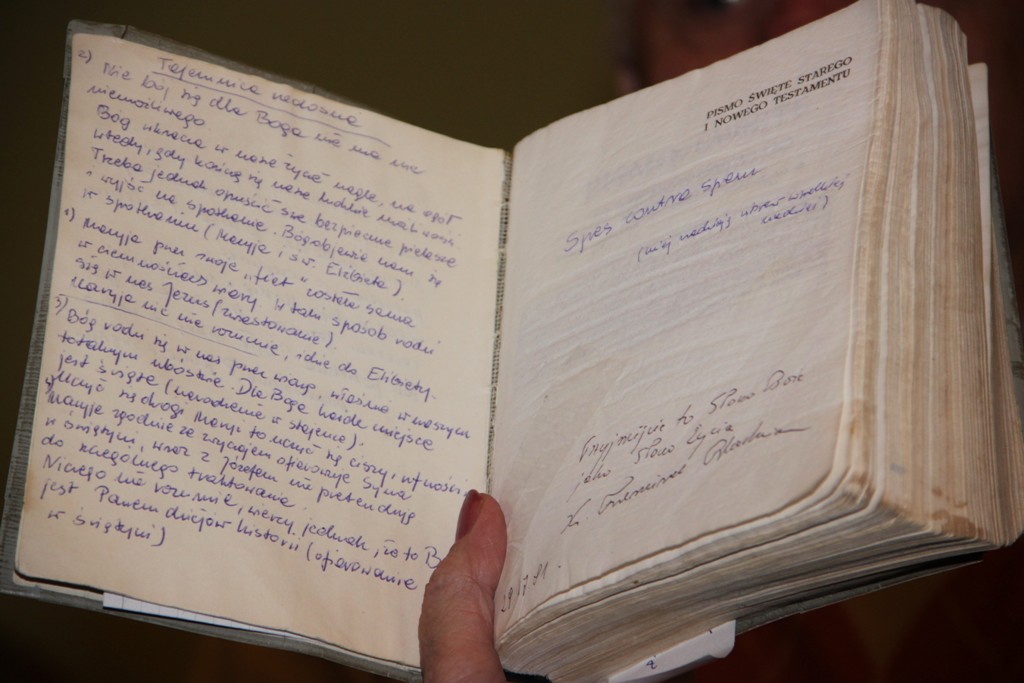 Tajemnica radosna
2) Nie bój się dla Boga nie ma nic
niemożliwego
Bóg wkracza w nasze życie nagle, na ogół
wtedy, gdy kończą się nasze ludzkie możliwości
Trzeba jednak opuścić swe bezpieczne pielesze
i wyjść na spotkanie. Bóg objawia nam się
w spotkaniu (Maryja i św. Elżbieta).
1) Maryja przez swoje "fiat" została sama
w ciemnościach wiary. W taki sposób rodzi
się w nas Jezus (zwiastowanie).
Maryja nic nie rozumie, idzie do Elżbiety.
3) Bóg rodzi się w nas przez wiarę, właśnie w naszym
totalnym ubóstwie. Dla Boga każde miejsce
jest święte (narodzenie w stajence).
uczyć się drogi Maryi to uczyć się ciszy, ufności
Maryja zgodnie ze zwyczajem ofiarowuje Syna
w świątyni, wraz z Józefem nie pretendują
do szczególnego traktowania.
Niczego nie rozumie, wierzy jednak, że to B
jest Panem dziejów historii (ofiarowanie
w świątyni)
PISMO ŚWIĘTE STAREGO
I NOWEGO TESTAMENTU
Spes contra spem
(miej nadzieję wbrew wszelkiej
nadziei)
Przyjmijcie to Słowo Boże
jako Słowo Życia
Ks.
81.